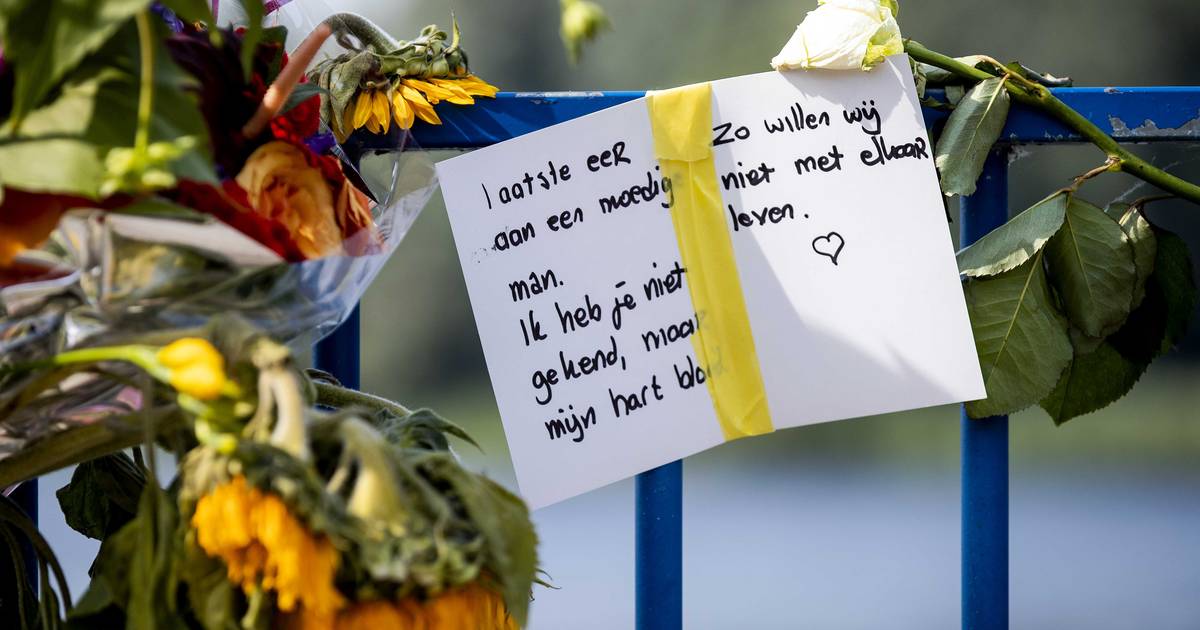 laatste eer
aan een moedig
man.
Ik heb je niet
gekend, maar
mijn hart
Zo willen wij
niet met elkaar
leven.